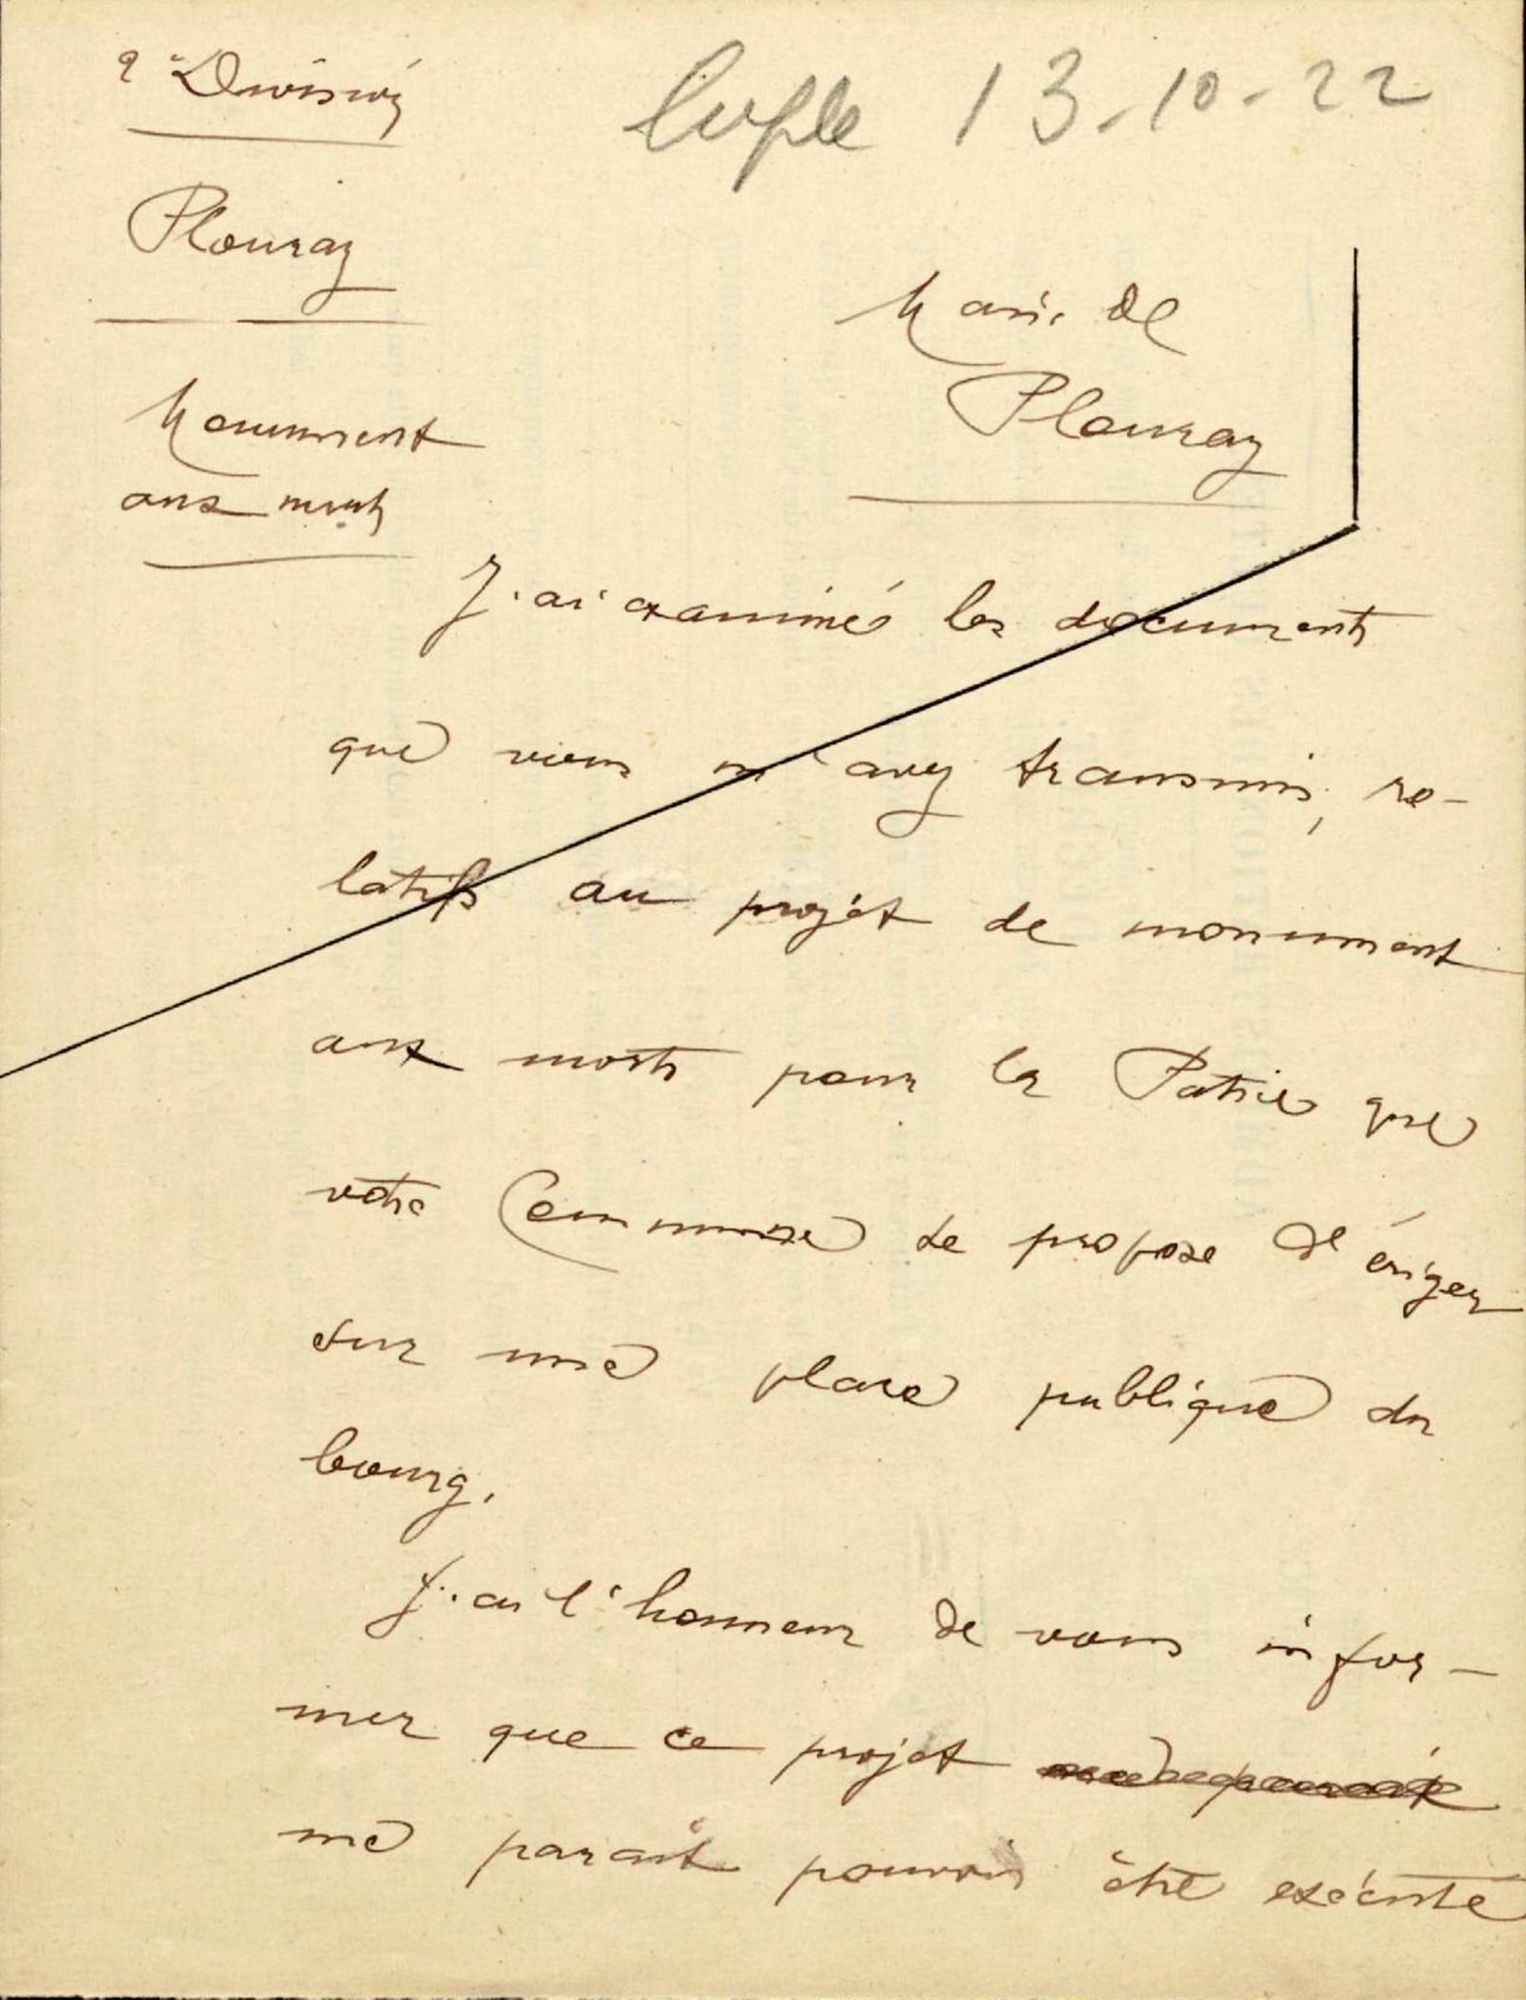 2e Division
13-10-22
Plouray
Maire de
Plouray
Monument
aux morts
J'ai examiné les documents
que vous m'avez transmis, re-
latifs au projet de monument
aux morts pour la Patrie que
votre Commune se propose d'ériger
sur une place publique du
bourg.
J'ai l'honneur de vous infor-
mer que ce projet
me parait pouvoir être exécuté